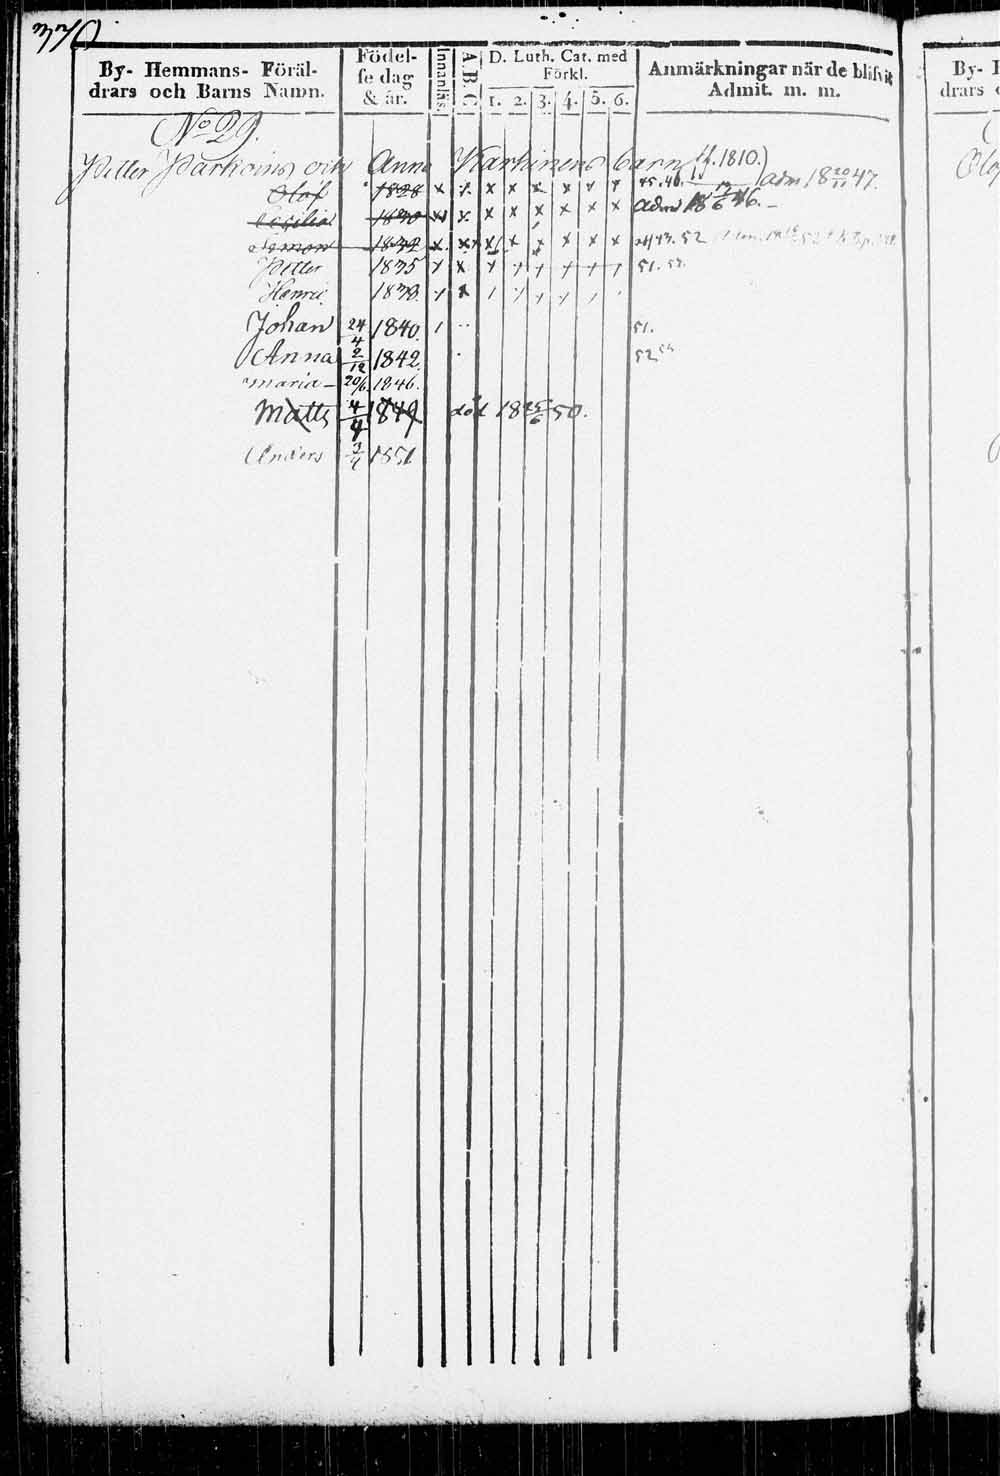 By- Hemmans- Föräl-
drars och Barns Namn.
Födel-
se dag
& år.
Innanläs.
A.B.C.
D. Luth. Cat. med
Förkl.
1. 2. 3. 4. 5. 6.
Anmärkningar när de blifvit
Admit. m. m.
No 29.
Petter Parkoins och Anna Karhinens barn (f. 1810.)
Olof 1828 x x x x x x x x 45.46. adm 18 20/11 47.
Cecilia 1830 x x x x x x x x adm 18 6 46.
Simon 1832 x x x x x x x x 43. 52
Petter 1835 x x 51. 52.
Henric 1838
Johan 24/4 1840. 51.
Anna 2/12 1842. 52
Maria - 20/6. 1846.
Matts 4/4 1849 död 18 25/6 50.
Anders 3/4 1851
By-
drars
Olof